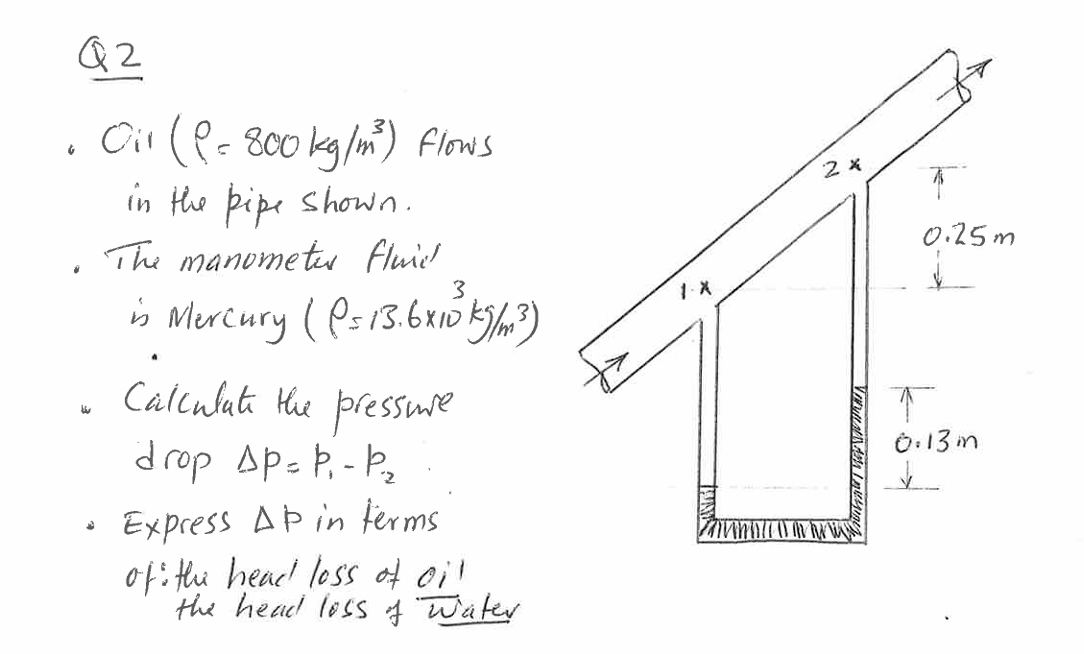 Q2
• Oil (ρ = 800 kg/m³) flows
in the pipe shown.
• The manometer fluid
is Mercury (ρ = 13.6x10³ kg/m³)
• Calculate the pressure
drop Δp = p₁ - p₂.
• Express Δp in terms
of: the head loss of oil
the head loss of water
2 x
0.25m
1 x
0.13m